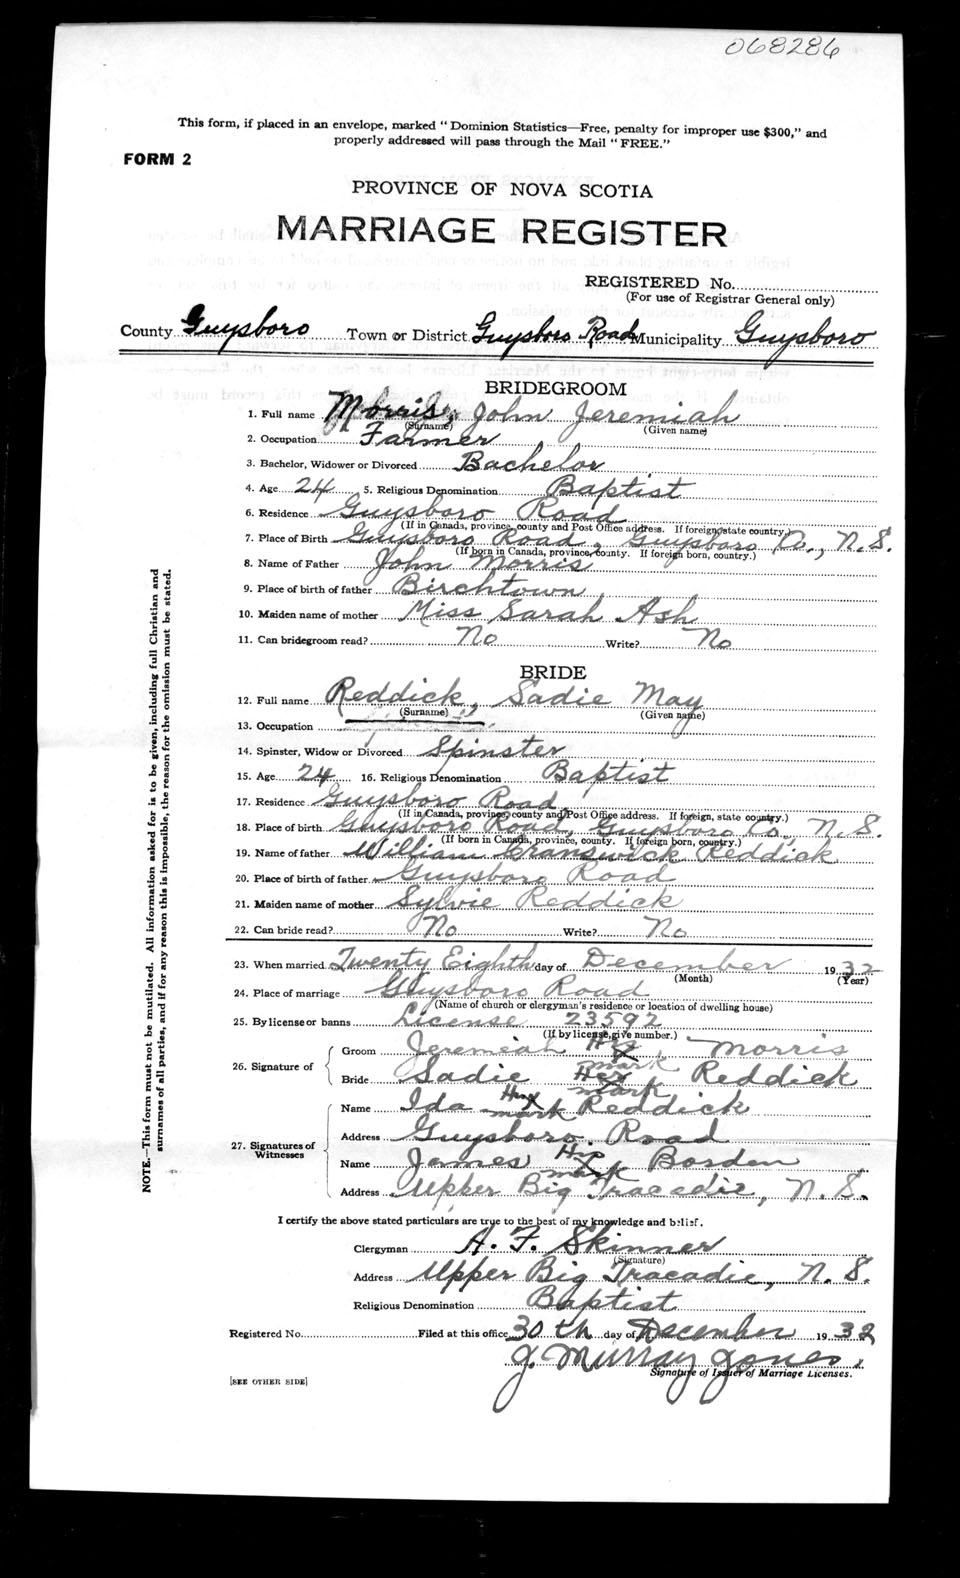 068286
This form, if placed in an envelope, marked "Dominion Statistics—Free, penalty for improper use $300," and
properly addressed will pass through the Mail "FREE."
FORM 2
PROVINCE OF NOVA SCOTIA
MARRIAGE REGISTER
REGISTERED No.
(For use of Registrar General only)
County Guysboro Town or District Guysboro Road Municipality Guysboro
BRIDEGROOM
1. Full name Morris, John Jeremiah
(Surname) (Given name)
2. Occupation Farmer
3. Bachelor, Widower or Divorced Bachelor
4. Age 24 5. Religious Denomination Baptist
6. Residence Guysboro Road
(If in Canada, province, county and Post Office address. If foreign, state country.)
7. Place of Birth Guysboro Road, Guysboro Co., N.S.
(If born in Canada, province, county. If foreign born, country.)
8. Name of Father John Morris
9. Place of birth of father Birchtown
10. Maiden name of mother Miss Sarah Ash
11. Can bridegroom read? No Write? No
BRIDE
12. Full name Reddick, Sadie May
(Surname) (Given name)
13. Occupation
14. Spinster, Widow or Divorced Spinster
15. Age 24 16. Religious Denomination Baptist
17. Residence Guysboro Road
(If in Canada, province, county and Post Office address. If foreign, state country.)
18. Place of birth Guysboro Road, Guysboro Co, N.S.
(If born in Canada, province, county. If foreign born, country.)
19. Name of father William Reddick
20. Place of birth of father Guysboro Road
21. Maiden name of mother Sylvie Reddick
22. Can bride read? No Write? No
23. When married Twenty Eighth day of December 1932
(Month) (Year)
24. Place of marriage Guysboro Road
(Name of church or clergyman's residence or location of dwelling house)
25. By license or banns License 23592
(If by license, give number.)
26. Signature of
Groom Jeremiah His X mark Morris
Bride Sadie Her X mark Reddick
27. Signatures of Witnesses
Name Ida Her X mark Reddick
Address Guysboro. Road
Name James His X mark Borden
Address Upper Big Tracadie, N.S.
I certify the above stated particulars are true to the best of my knowledge and belief.
Clergyman A. F. Skinner
(Signature)
Address Upper Big Tracadie, N.S.
Religious Denomination Baptist
Registered No. Filed at this office 30th day of December 1932
J. Murray Jones.
Signature of Issuer of Marriage Licenses.
[SEE OTHER SIDE]
NOTE.—This form must not be mutilated. All information asked for is to be given, including full Christian and
surnames of all parties, and if for any reason this is impossible, the reason for the omission must be stated.